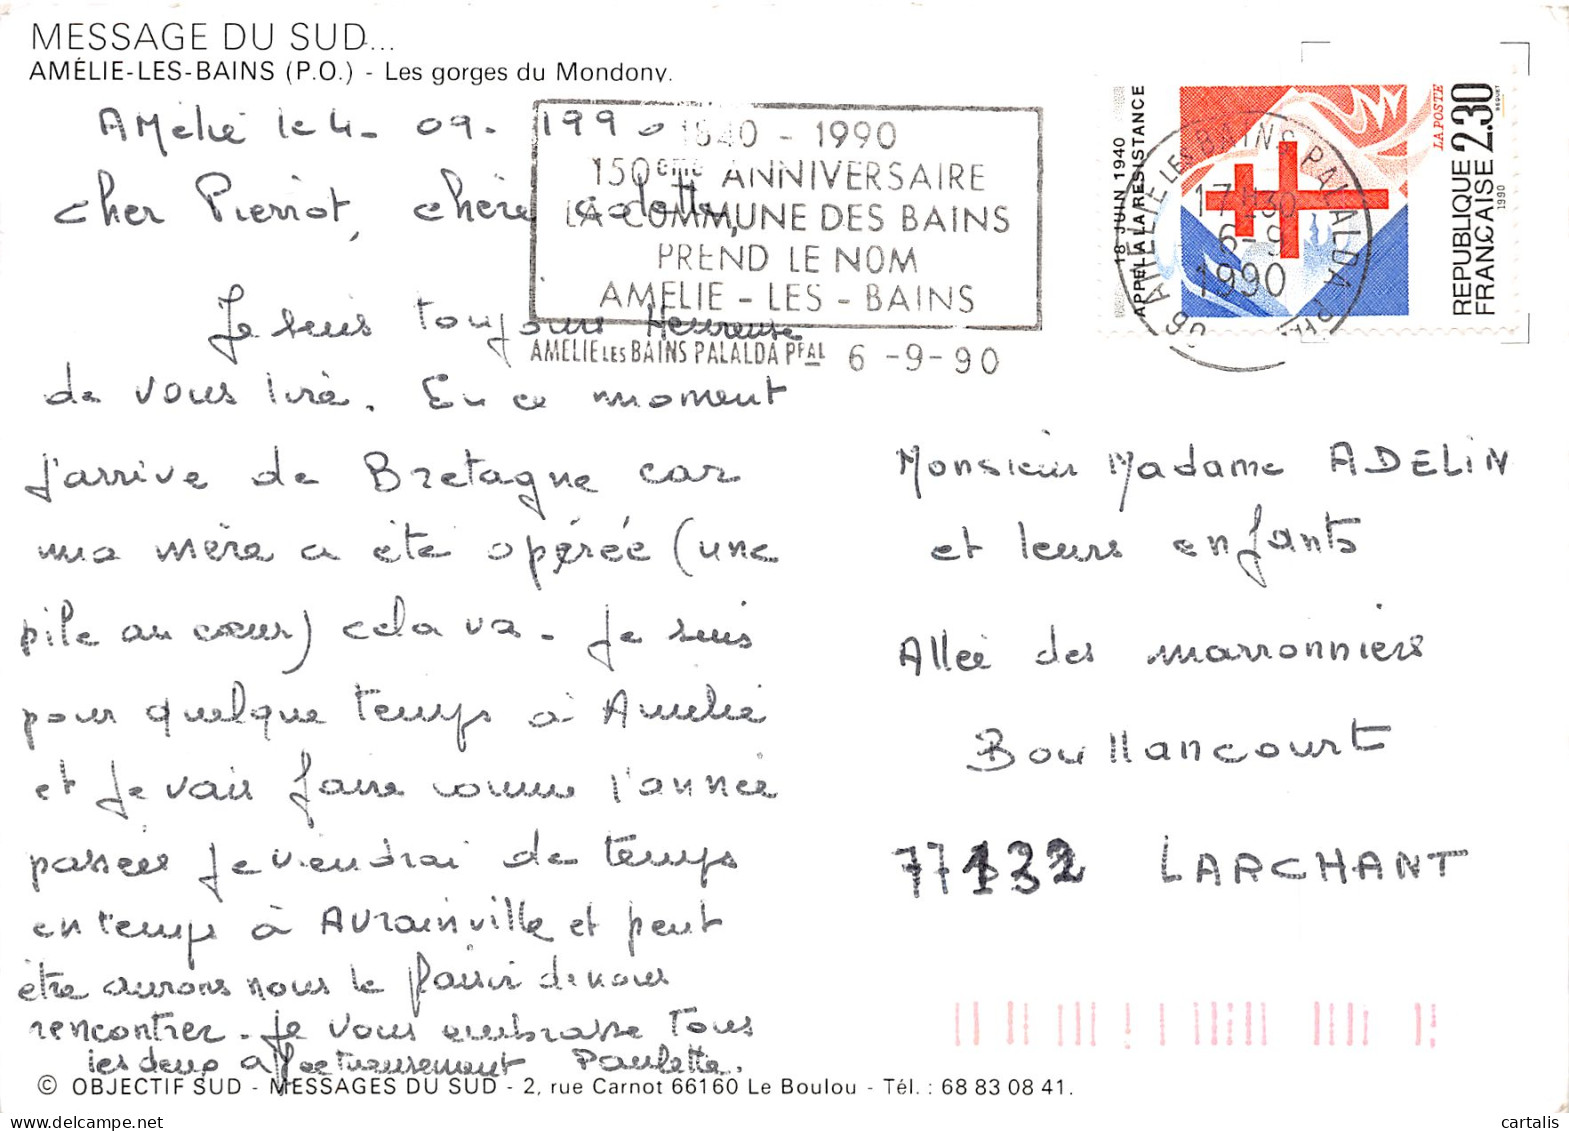 MESSAGE DU SUD...
AMÉLIE-LES-BAINS (P.O.) - Les gorges du Mondony.
Amélie le 4-09-1990
Cher Pierrot, chère Colette,
Je suis toujours Heureuse
de vous lire. En ce moment
j'arrive de Bretagne car
ma mère a été opérée (une
pile au cœur) cela va. Je suis
pour quelque temps à Amélie
et je vais faire comme l'année
passée je viendrai de temps
en temps à Avrainville et peut
être aurons nous le plaisir de vous
rencontrer. Je vous embrasse tous
les deux affectueusement Paulette.
1840 - 1990
150ème ANNIVERSAIRE
LA COMMUNE DES BAINS
PREND LE NOM
AMELIE - LES - BAINS
AMELIE LES BAINS PALALDA PPAL 6 -9-90
18 JUIN 1940
APPEL A LA RESISTANCE
LA POSTE
2.30
REPUBLIQUE
FRANÇAISE
1990
AMELIE LES BAINS PALALDA
17H30
6-9
1990
66
Monsieur Madame ADELIN
et leurs enfants
Allée des marronniers
Bouillancourt
77132 LARCHANT
© OBJECTIF SUD - MESSAGES DU SUD - 2, rue Carnot 66160 Le Boulou - Tél. : 68 83 08 41.
cartalis